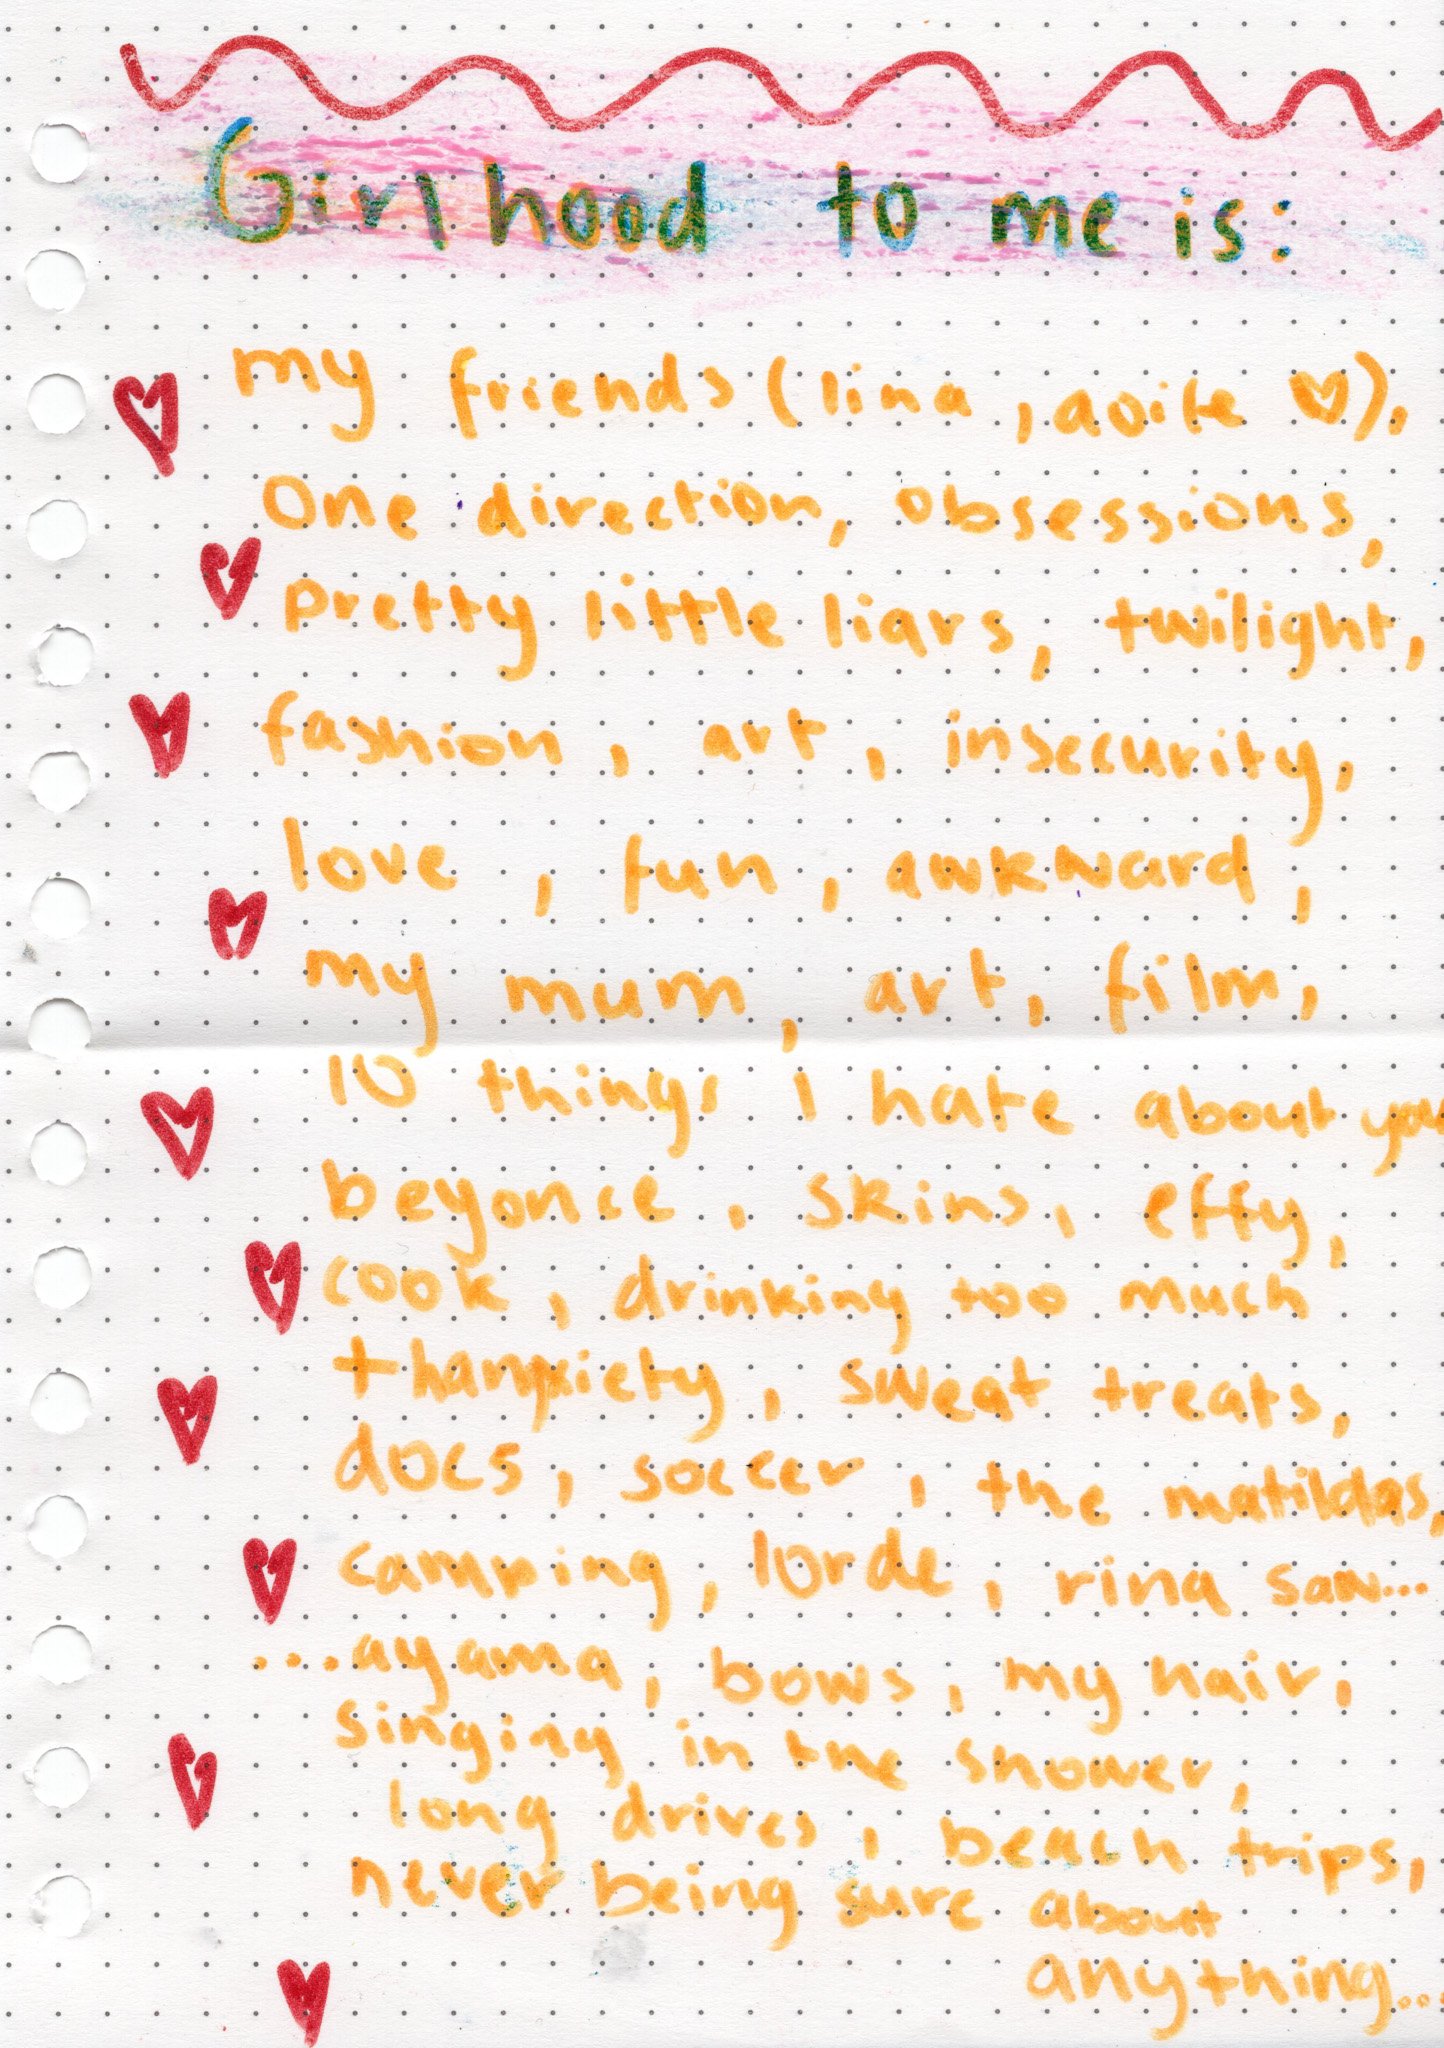 Girlhood to me is:
my friends (lina, aoife ♡),
One direction, obsessions,
pretty little liars, twilight,
fashion, art, insecurity,
love, fun, awkward,
my mum, art, film,
10 things i hate about you
beyonce, skins, effy,
cook, drinking too much
+ hanxiety, sweat treats,
docs, soccer, the matildas,
camping, lorde, rina saw...
...ayama, bows, my hair,
singing in the shower,
long drives, beach trips,
never being sure about
anything...